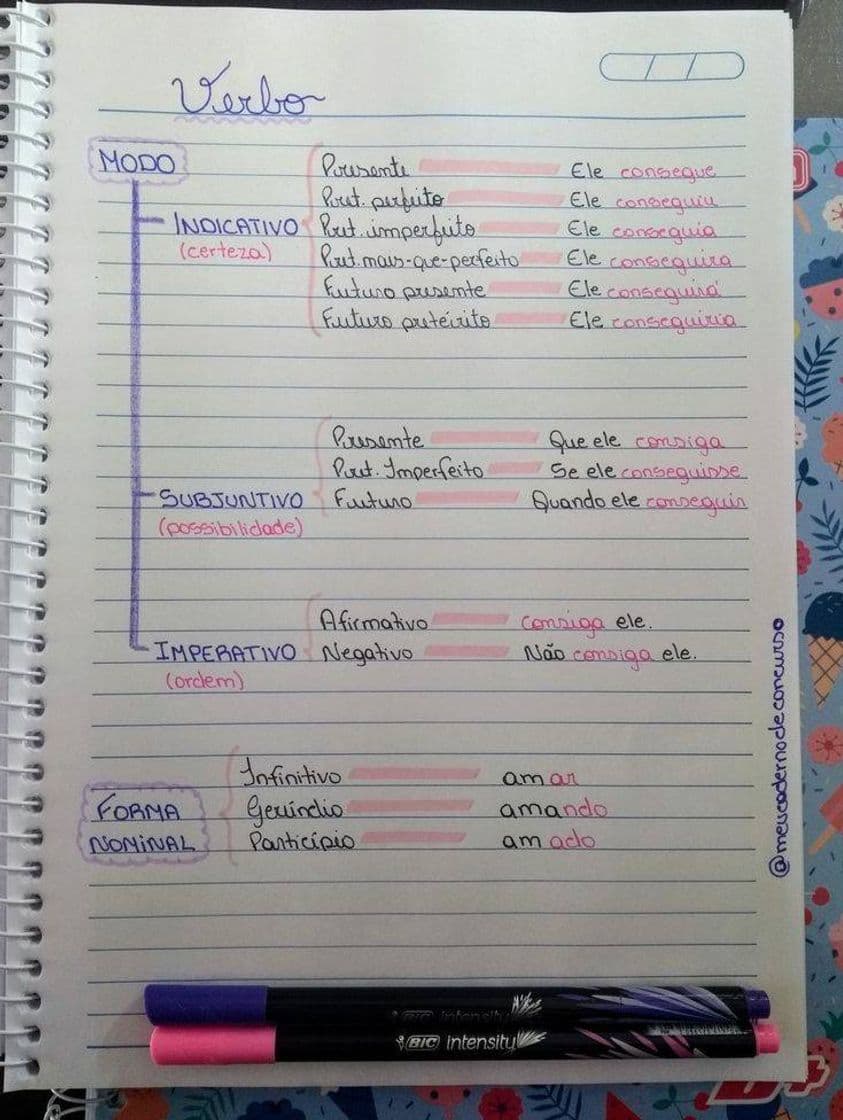 Verbo
MODO
INDICATIVO
(certeza)
Presente Ele consegue
Pret. perfeito Ele conseguiu
Pret. imperfeito Ele conseguia
Pret. mais-que-perfeito Ele conseguira
Futuro presente Ele conseguirá
Futuro pretérito Ele conseguiria
SUBJUNTIVO
(possibilidade)
Presente Que ele consiga
Pret. Imperfeito Se ele conseguisse
Futuro Quando ele conseguir
IMPERATIVO
(ordem)
Afirmativo Consiga ele.
Negativo Não consiga ele.
FORMA
NOMINAL
Infinitivo amar
Gerúndio amando
Particípio amado
@meucadernodeconcurso
BIC intensity
BIC intensity